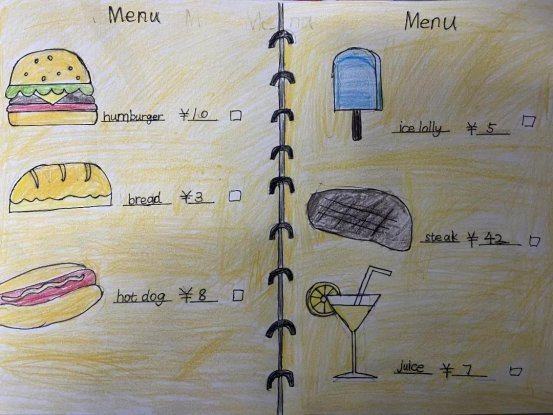 Menu
humburger ¥10
bread ¥3
hot dog ¥8
Menu
ice lolly ¥5
steak ¥42
juice ¥7